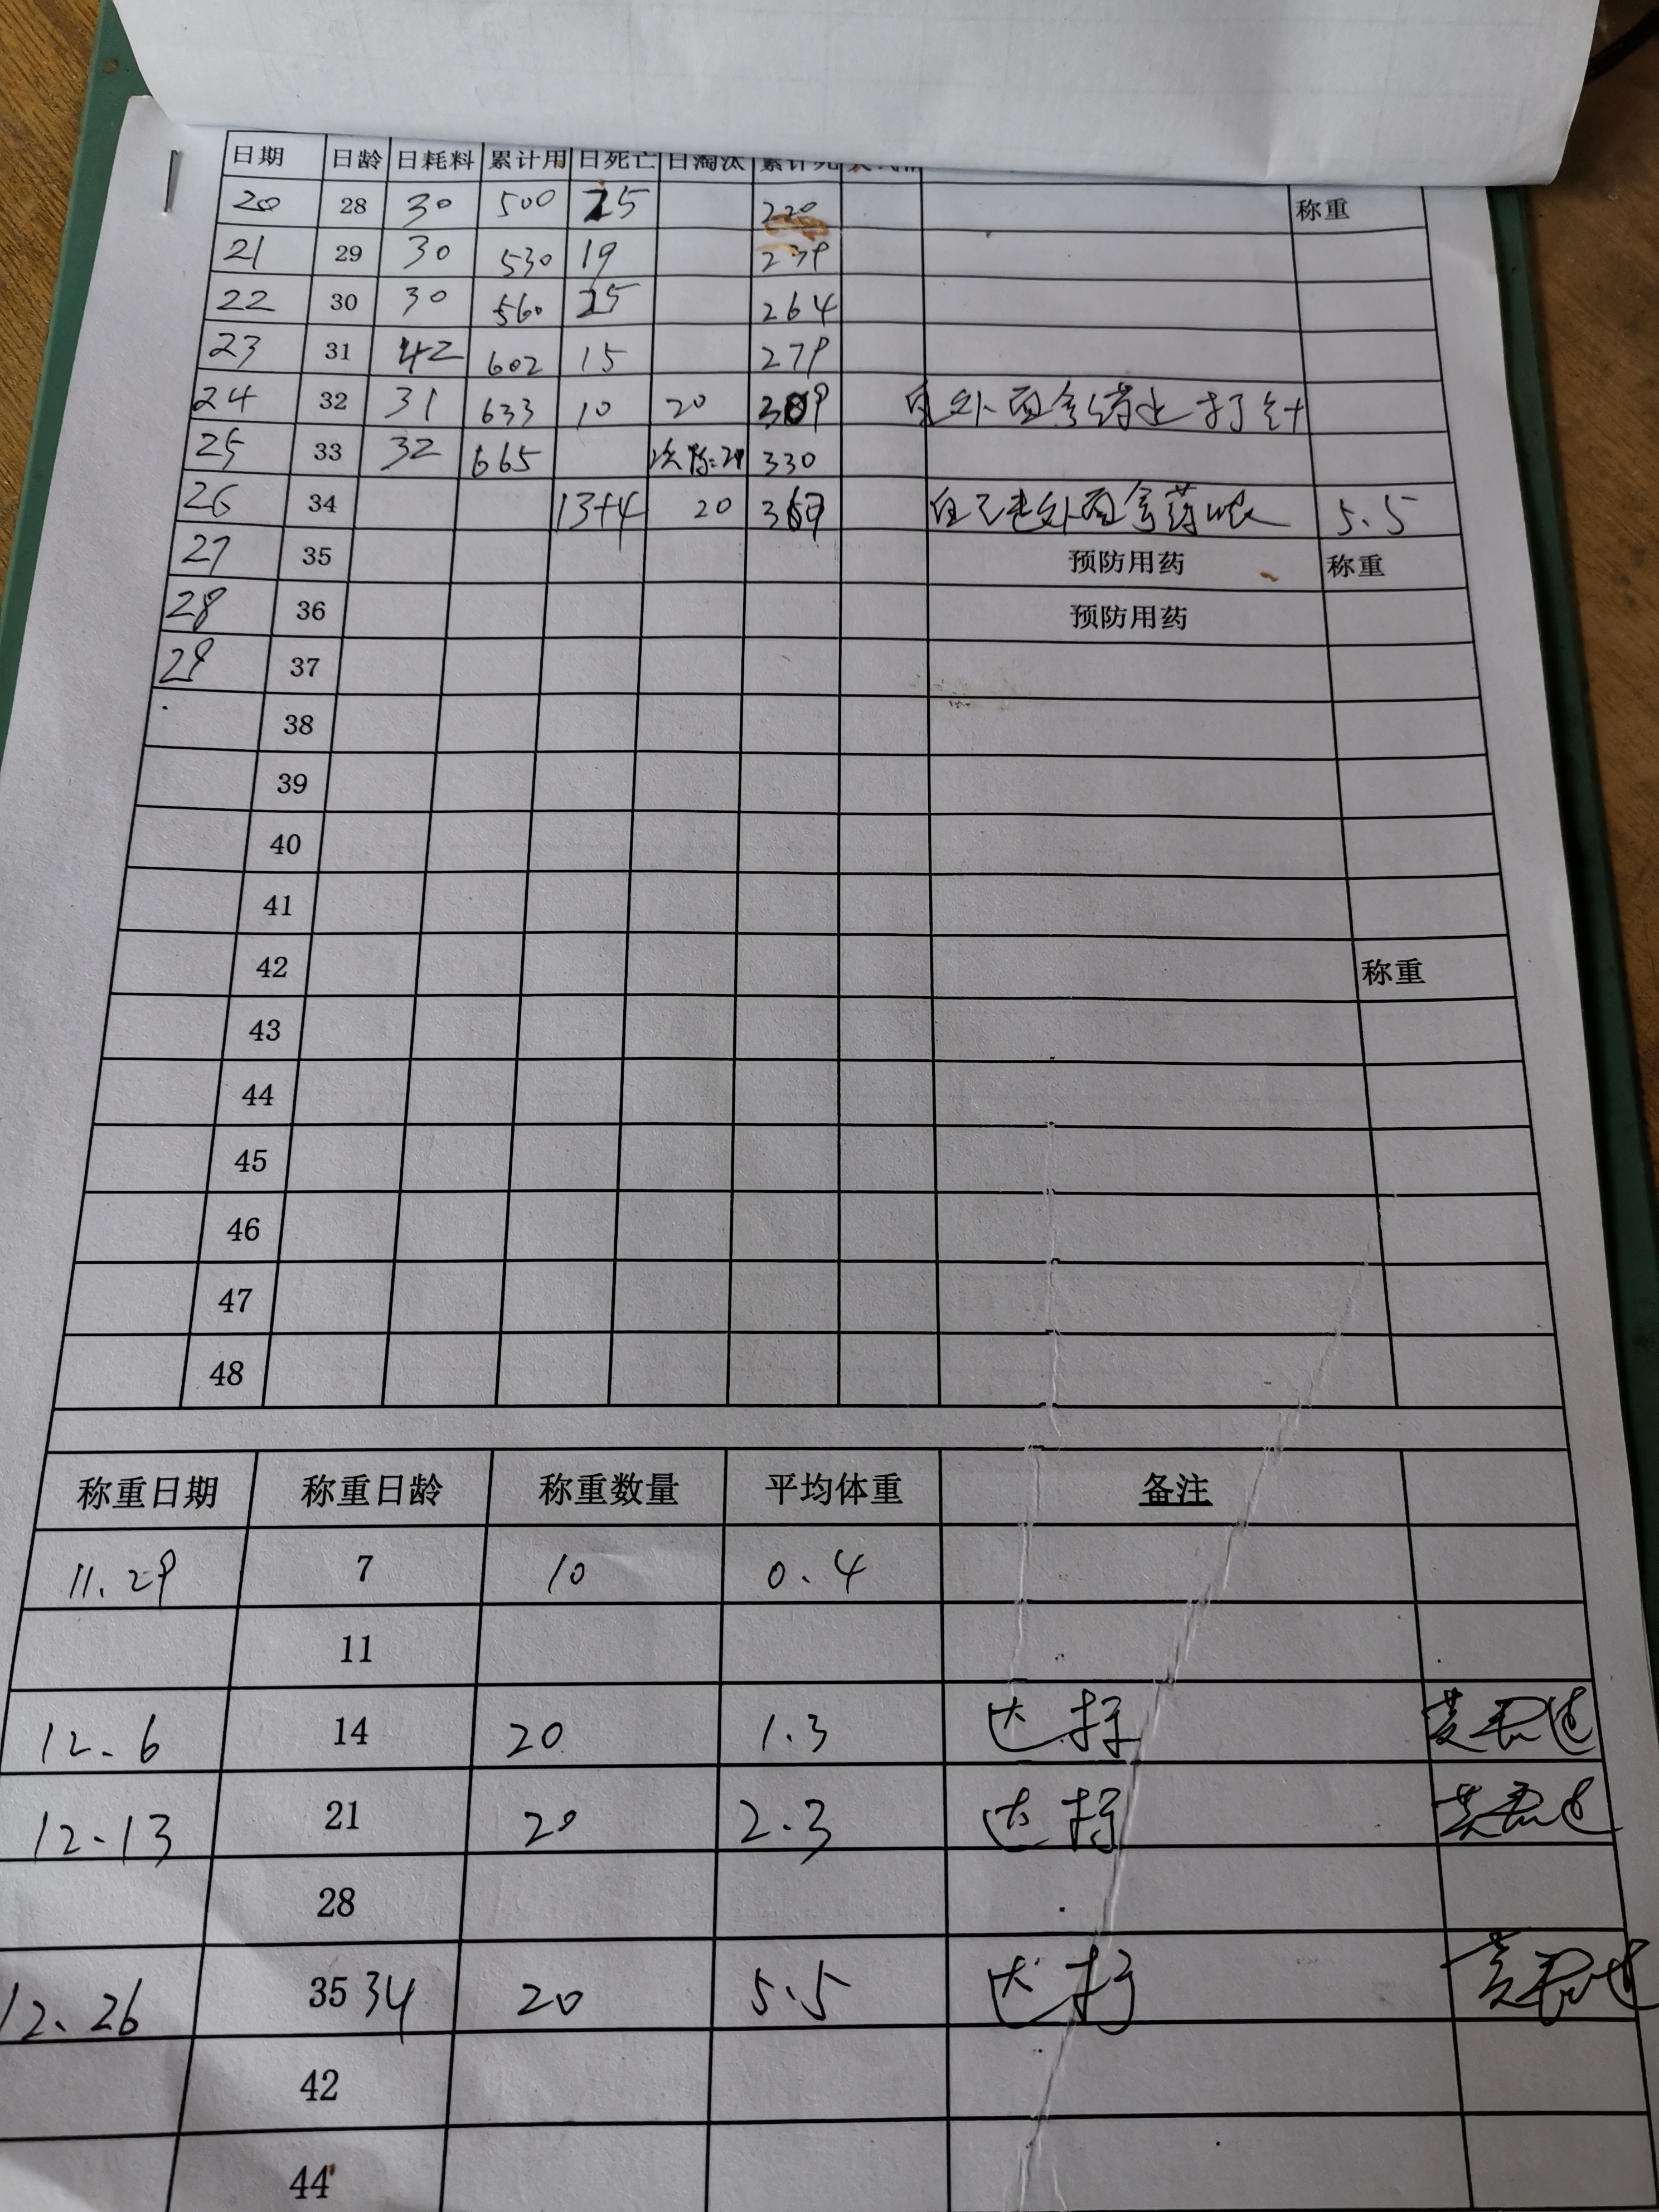 日期 日龄 日耗料 累计用 日死亡 日淘汰 累计死
20 28 30 500 25 220 称重
21 29 30 530 19 239
22 30 30 560 25 264
23 31 42 602 15 279
24 32 31 633 10 20 309 自外面拿药 打针
25 33 32 665 330
26 34 13+4 20 367 自己 外面拿药 5.5
27 35 预防用药 称重
28 36 预防用药
29 37
38
39
40
41
42 称重
43
44
45
46
47
48
称重日期 称重日龄 称重数量 平均体重 备注
11.29 7 10 0.4
11
12.6 14 20 1.3 达标
12.13 21 20 2.3 达标
28
12.26 35 34 20 5.5 达标
42
44